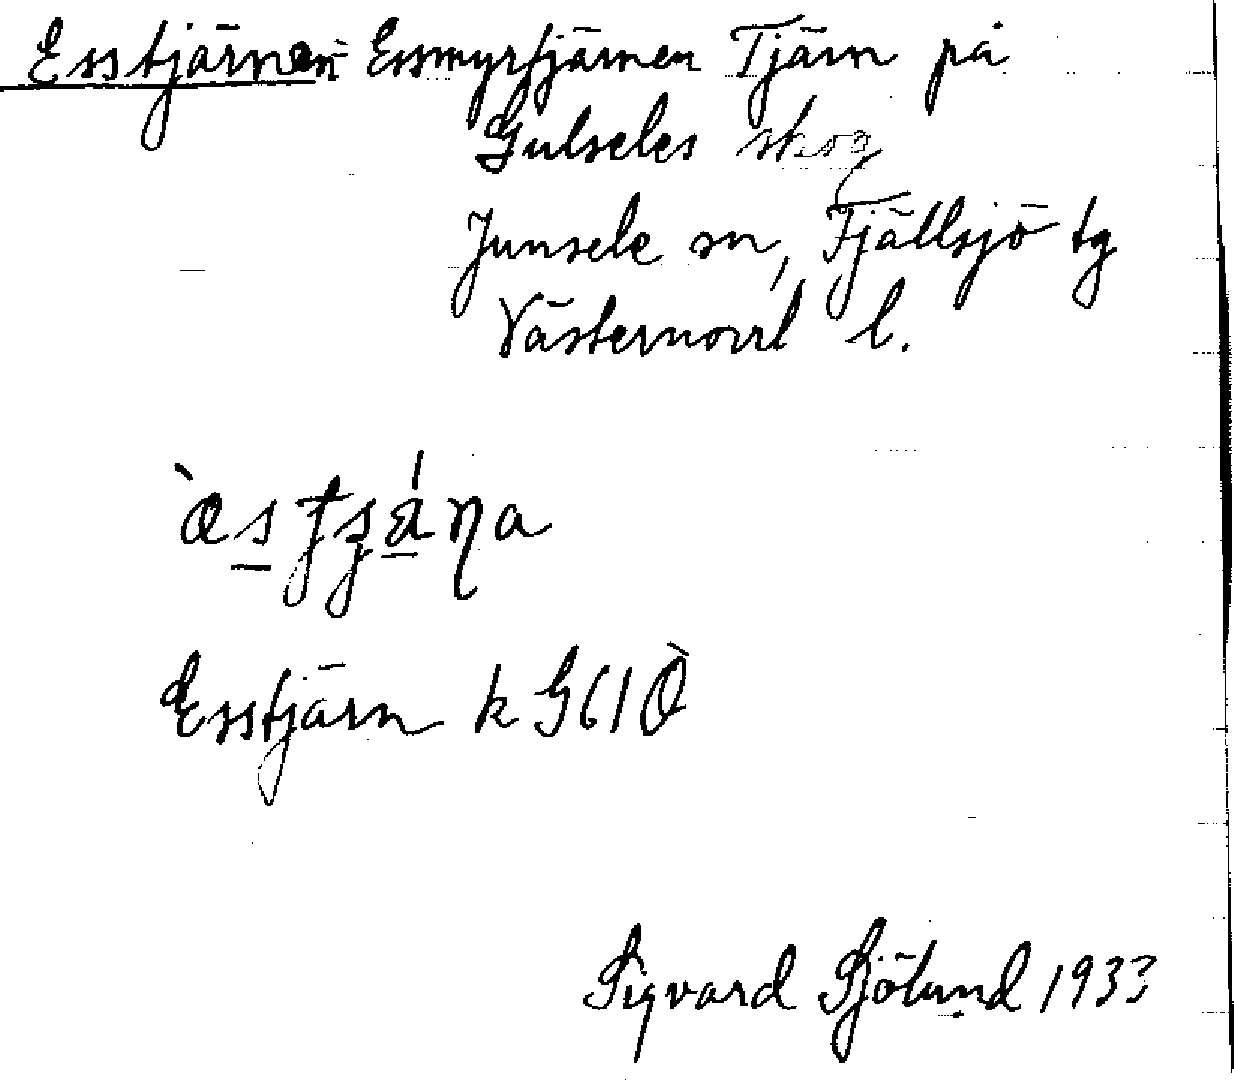 Esstjärnen Essmyrtjärnen Tjärn på
Gulseles skog
Junsele sn, Fjällsjö tg
Västernorrl l.
Esstjärn k G61Ö
Sigvard Sjölund 1933